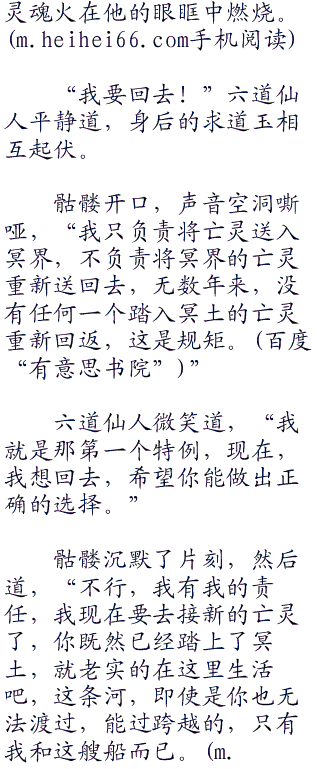 灵魂火在他的眼眶中燃烧。
(m.heihei66.com手机阅读)
“我要回去！”六道仙
人平静道，身后的求道玉相
互起伏。
骷髅开口，声音空洞嘶
哑，“我只负责将亡灵送入
冥界，不负责将冥界的亡灵
重新送回去，无数年来，没
有任何一个踏入冥土的亡灵
重新回返，这是规矩。(百度
“有意思书院”)”
六道仙人微笑道，“我
就是那第一个特例，现在，
我想回去，希望你能做出正
确的选择。”
骷髅沉默了片刻，然后
道，“不行，我有我的责
任，我现在要去接新的亡灵
了，你既然已经踏上了冥
土，就老实的在这里生活
吧，这条河，即使是你也无
法渡过，能过跨越的，只有
我和这艘船而已。(m.